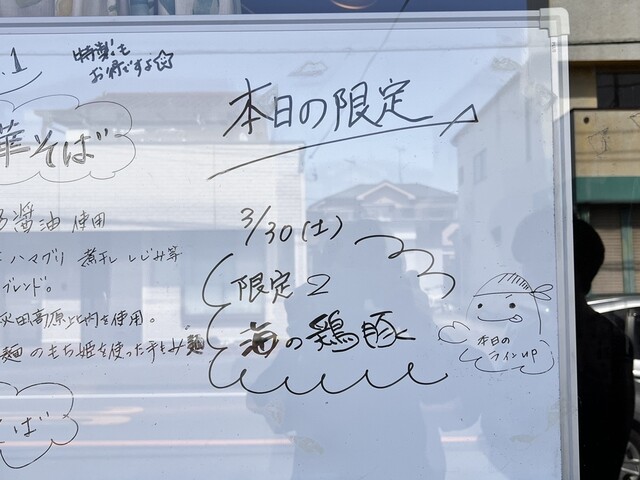 .1
特製も
お得ですよ☆
華そば
醤油 使用
ハマグリ 煮干 しじみ等
ブレンド。
秋田高原比内を使用。
麺のもち姫を使った手もみ麺
そば
本日の限定
3/30(土)
限定2
海の鶏豚
本日の
ラインup